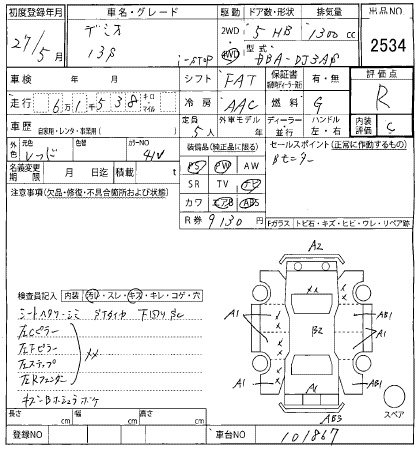 初度登録年月 車名・グレード 駆動 ドア数・形状 排気量 出品NO
27/5月 デミオ 13S i-STOP 2WD 4WD 5 HB 1300 cc 2534
型式 DBA-DJ3AS
車検 年 月 シフト FAT 保証書 有・無 評価点
走行 6万1千538 キロ・マイル 冷房 AAC 燃料 G R
車歴 自家用・レンタ・事業用( ) 定員 5人 外車モデル 年 ディーラー 並行 ハンドル 左・右 内装評価 C
外色 元色 色替 カラーNO 41V
装備品(純正品に限る) セールスポイント(正常に作動するもの)
Bモニター
名義変更期限 月 日迄 積載 t
PS PW AW
SR TV ナビ
カワ エアB ABS
注意事項(欠品・修復・不具合箇所および状態)
R券 9130 円
Fガラス トビ石・キズ・ヒビ・ウレ・リペア跡
検査員記入 内装 汚レ・スレ・キズ・キレ・コゲ・穴
左Cピラー
左Fピラー
左ステップ
左Rフェンダー
XX
A2
XX
A1
B2
AB1
A1
A1
AB1
A1
AB3
スペア
長さ cm 幅 cm 高さ cm
登録NO 車台NO 101867